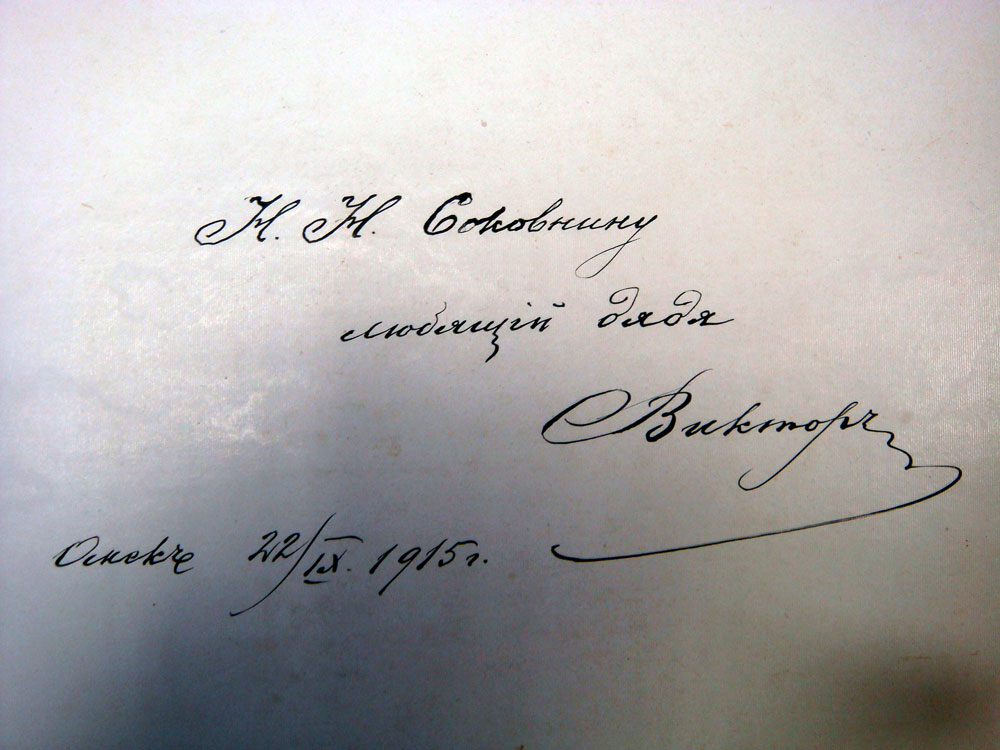 Н. Н. Соковнину
любящій дядя
Викторъ
Омскъ 22/IX. 1915 г.